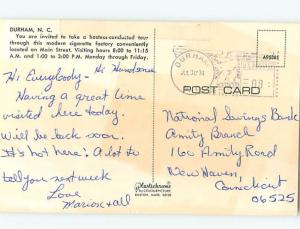 DURHAM, N. C.
You are invited to take a hostess-conducted tour
through this modern cigarette factory conveniently
located on Main Street. Visiting hours 8:00 to 11:15
A.M. and 1:00 to 3:00 P.M. Monday through Friday.
Hi Everybody -
Having a great time
visited here today.
Will be back soon.
It's hot here! A lot to
tell you next week
Love
Marion + all
DURHAM
POST CARD
National Savings Bank
Amity Branch
160 Amity Road
New Haven,
Connecticut
06525
Plastichrome